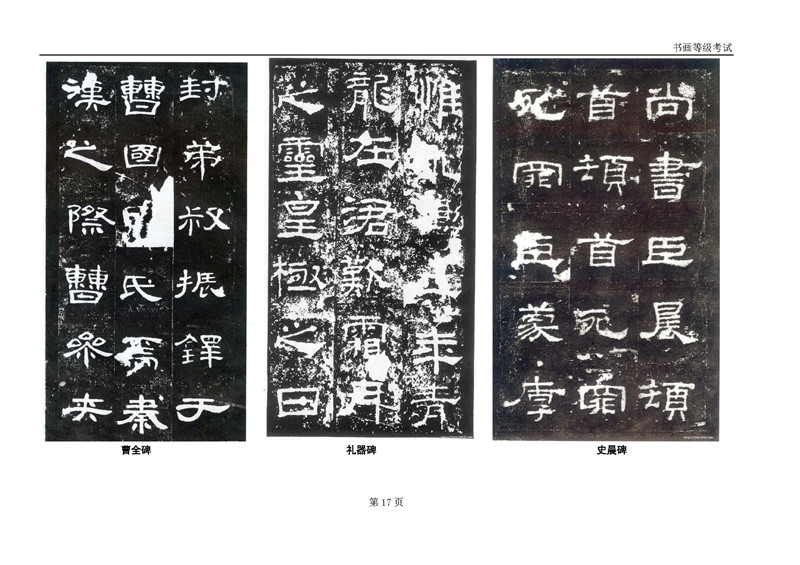 书画等级考试
封弟叔振鐸于
曹國因氏焉秦
漢之際曹參夾
曹全碑
惟年青
龍在涒歎霜月
之靈皇極之日
礼器碑
尚書臣晨頓
首頓首死罪
死罪臣蒙厚
史晨碑
第 17 页